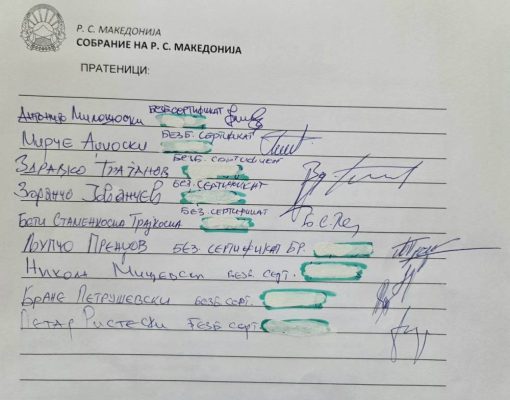 Р. С. МАКЕДОНИЈА
СОБРАНИЕ НА Р. С. МАКЕДОНИЈА
ПРАТЕНИЦИ:
Антонијо Милошоски БЕЗБ. СЕРТИФИКАТ
Мирче Аџиоски БЕЗБ. СЕРТИФИКАТ
ЗДРАВКО ТРАЈАНОВ БЕЗБ. СЕРТИФИКАТ
БЕЗБ. СЕРТИФИКАТ
Бети СТАМЕНКОСКА ТРАЈКОСКА БЕЗБ. СЕРТИФИКАТ
ЉУПЧО ПРЕНЏОВ БЕЗ. СЕРТИФИКАТ БР.
НИКОЛА МИЦЕВСКИ БЕЗБ. СЕРТ.
БРАНЕ ПЕТРУШЕВСКИ БЕЗБ СЕРТ.
ПЕТАР РИСТЕСКИ БЕЗБ СЕРТ.